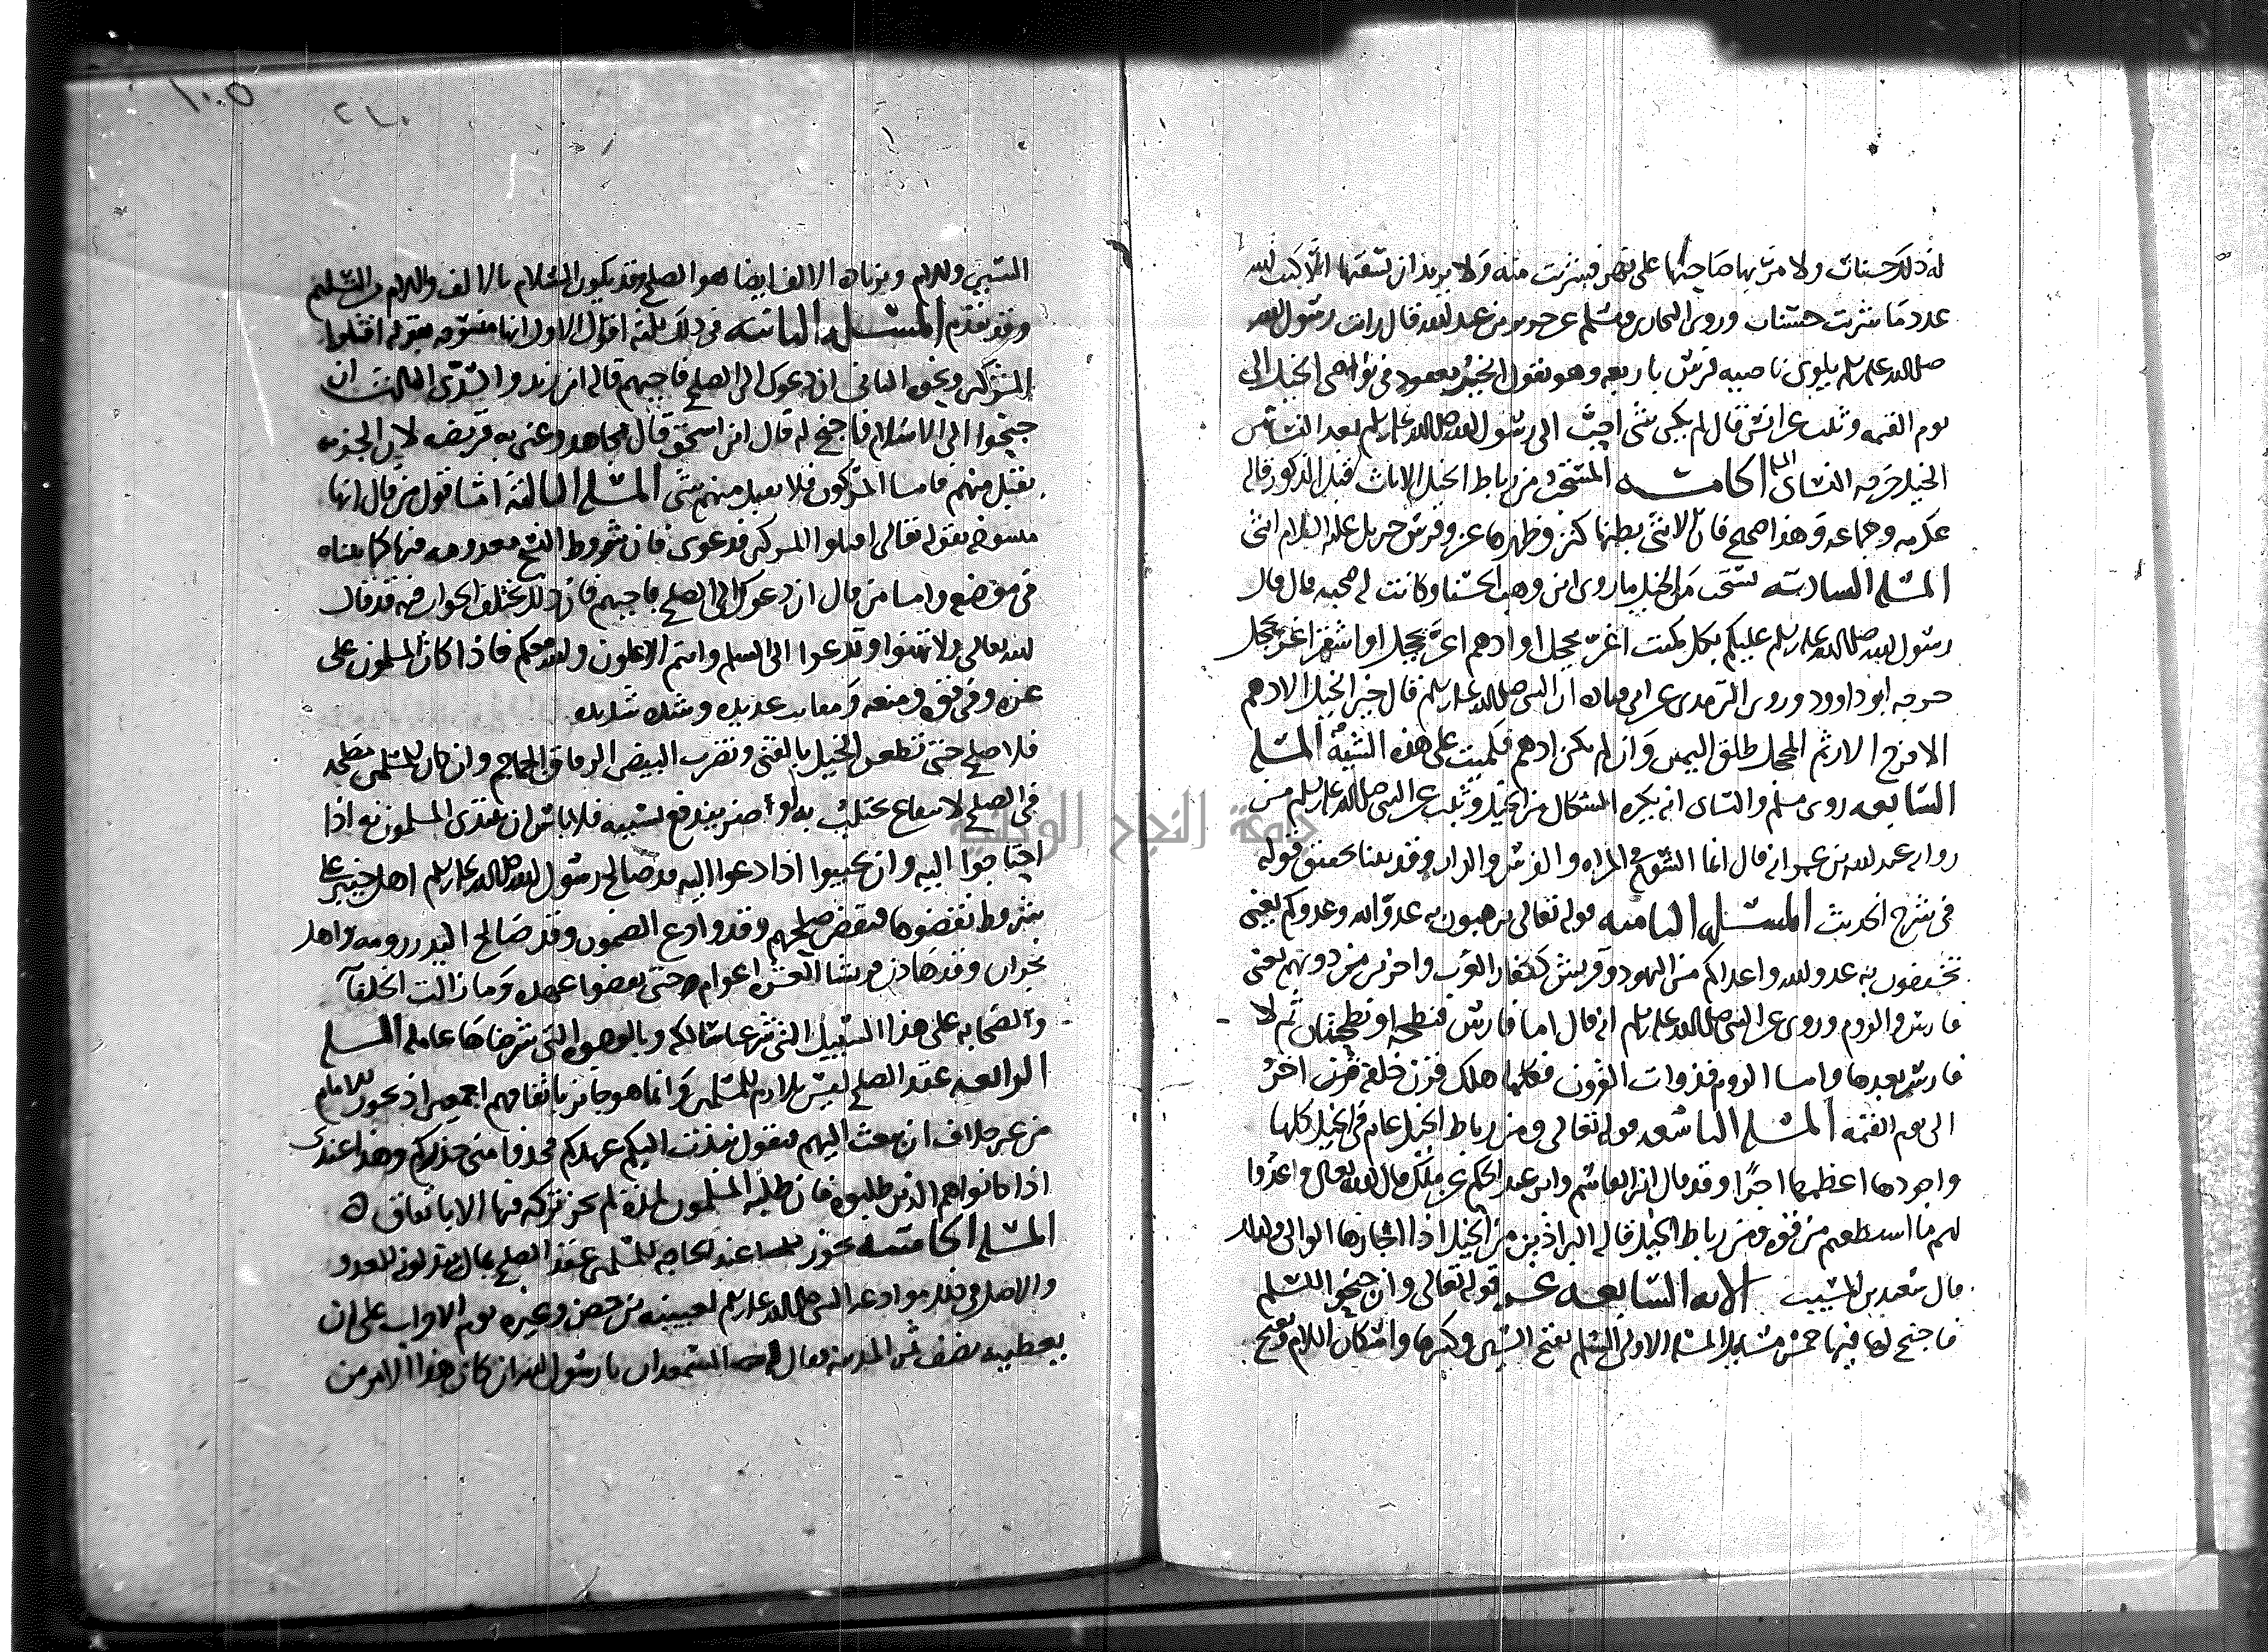 له ذلك حسنات ولا مر بها صاحبها على نهر فشربت منه ولا يريد ان تسقيها الا كتب لله
عدد ما شربت حسنات وروى البخارى ومسلم عن جرير بن عبد الله قال رايت رسول الله
صلى الله عليه وسلم يلوى ناصيه فرس باصبعه وهو يقول الخير معقود فى نواصى الخيل الى
يوم القيمه وثبت عن انس قال لم يكن شى احب الى رسول الله صلى الله عليه وسلم بعد النسا من
الخيل خرجه النساى المسله الخامسه المستحب من رباط الخيل الاناث قبل الذكور قاله
عكرمه وجماعه وهذا صحيح فان الانثى بطنها كنز وظهرها عز وفرس جبريل عليه السلام انثى
المسله السادسه يستحب من الخيل ما روى ابن وهب الحسنا وكانت له صحبه قال قال
رسول الله صلى الله عليه وسلم عليكم بكل كميت اغر محجل او ادهم اغر محجل او اشقر اغر محجل
خرجه ابو داوود وروى الترمدى عن ابى قتاده ان النبى صلى الله عليه وسلم قال خير الخيل الادهم
الاقرح الارثم المحجل طلق اليمين وان لم يكن ادهم فكميت على هذه الشيه المسله
السابعه روى مسلم والنساى انه يكره الشكال من الخيل وثبت عن النبى صلى الله عليه وسلم من
روايه عبد الله بن عمر انه قال انما الشوم فى المراه والفرس والدار وقد بينا تحقيق قوله
فى شرح الحديث المسله الثامنه قوله تعالى ترهبون به عدو الله وعدوكم يعنى
تخيفون به عدو الله واعداكم من اليهود وقريش كفار العرب واخرين من دونهم يعنى
فارس والروم وروى عن النبى صلى الله عليه وسلم انه قال اما فارس فنطحه او نطحتان ثم لا
فارس بعدها واما الروم فذوات القرون فكلما هلك قرن خلفه قرن اخر
الى يوم القيمه المسله التاسعه قوله تعالى ومن رباط الخيل عام فى الخيل كلها
واجودها اعظمها اجرا وقد قال ابن القاسم وابن عبد الحكم عن ملك قال الله تعالى واعدوا
لهم ما استطعتم من قوه ومن رباط الخيل قاله البراذين من الخيل اذا اجازها الوالى وكذلك
قال سعيد بن المسيب الايه السابعه عشر قوله تعالى وان جنحوا للسلم
فاجنح لها فيها خمس مسايل المسله الاولى السلم بفتح السين وكسرها واسكان اللام وبفتح
السين واللام وبزياده الالف ايضا هو الصلح وقد يكون السلام بالالف واللام من التسليم
وقد تقدم المسله الثانيه فى ذلك ثلثه اقوال الاول انها منسوخه بقوله اقتلوا
المشركين ونحوه الثانى ان دعوك الى الصلح فاجبهم قاله ابن زيد والسدى الثالث ان
جنحوا الى الاسلام فاجنح له قال ابن اسحق قال مجاهد وعنى به قريظه لان الجزيه
تقبل منهم فاما المشركون فلا يقبل منهم شى المسله الثالثه اما قول من قال انها
منسوخه بقوله تعالى اقتلوا المشركين فدعوى فان شروط النسخ معدومه فيها كما بيناه
فى موضعه واما من قال ان دعوك الى الصلح فاجبهم فان ذلك يختلف الجواب فيه فقد قال
الله تعالى ولا تهنوا وتدعوا الى السلم وانتم الاعلون والله معكم فاذا كان المسلمون على
عزه وفى قوه ومنعه ومقانب عديده وشده شديده
فلا صلح حتى تطعن الخيل بالقنى وتضرب البيض الرقاق الجماجم وان كان للمسلمين مصلحه
فى الصلح لانتفاع يجتلب به او ضر يندفع بسببه فلا باس ان يبتدى المسلمون به اذا
احتاجوا اليه وان يجيبوا اذا دعوا اليه قد صالح رسول الله صلى الله عليه وسلم اهل خيبر على
شروط نقضوها فنقض صلحهم وقد وادع الضمرى وقد صالح اكيدر دومه واهل
نجران وقد هادن قريشا لعشره اعوام حتى نقضوا عهده وما زالت الخلفآ
والصحابه على هذا السبيل التى شرعناها سالكه وبالوجوه التى شرحناها عامله المسله
الرابعه عقد الصلح ليس بلازم للمسلمين وانما هو جايز باتفاقهم اجمعين اذ يجوز للامام
من غير خلاف ان يبعث اليهم فيقول نبذت اليكم عهدكم فخذوا منى حذركم وهذا عندى
اذا كانوا هم الذين طلبوه فان طلبه المسلمون لمده لم يجز تركه فيها الا باتفاق ه
المسله الخامسه يجوز عند الحاجه للمسلمين عقد الصلح بمال يبذلونه للعدو
والاصل فى ذلك موادعه النبى صلى الله عليه وسلم لعيينه بن حصن وغيره يوم الاحزاب على ان
يعطيه نصف ثمر المدينه فقال له السعدان يا رسول الله ان كان هذا الامر من